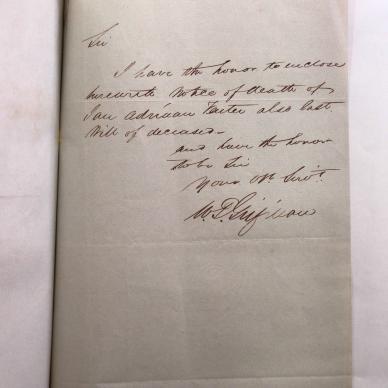 Sir
I have the honor to enclose
herewith Notice of Death of
Jan Adriaan Faeter also last
Will of deceased—
and have the honor
to be Sir
Your Ob. Servt.